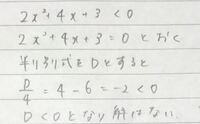 2x²+4x+3<0
2x²+4x+3=0とおく
判別式をDとすると
D/4=4-6=-2<0
D<0となり解はない.